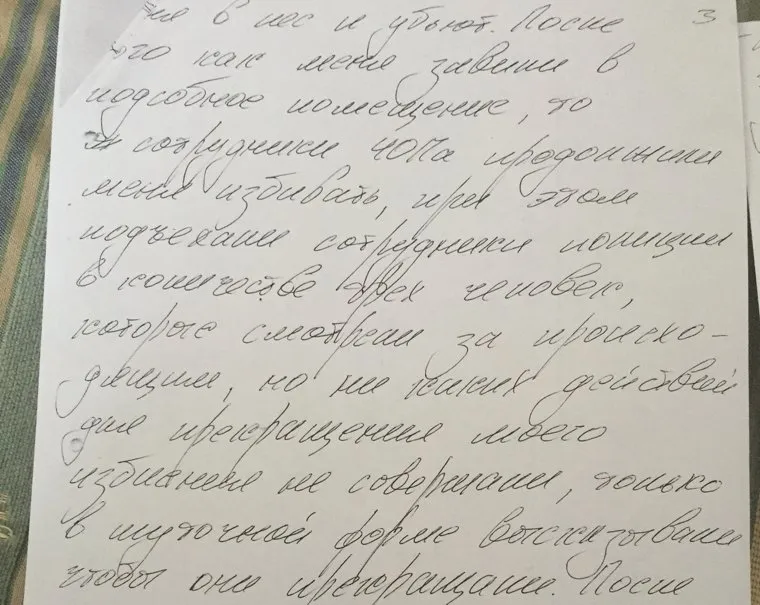 3
в лес и убьют. После
как меня завели в
подсобное помещение, то
сотрудники ЧОПа продолжили
меня избивать, при этом
подъехали сотрудники полиции
в количестве двух человек,
которые смотрели за происхо-
дящим, но ни каких действий
для прекращения моего
избиения не совершали, только
в шуточной форме высказывали
чтобы они прекращали. После